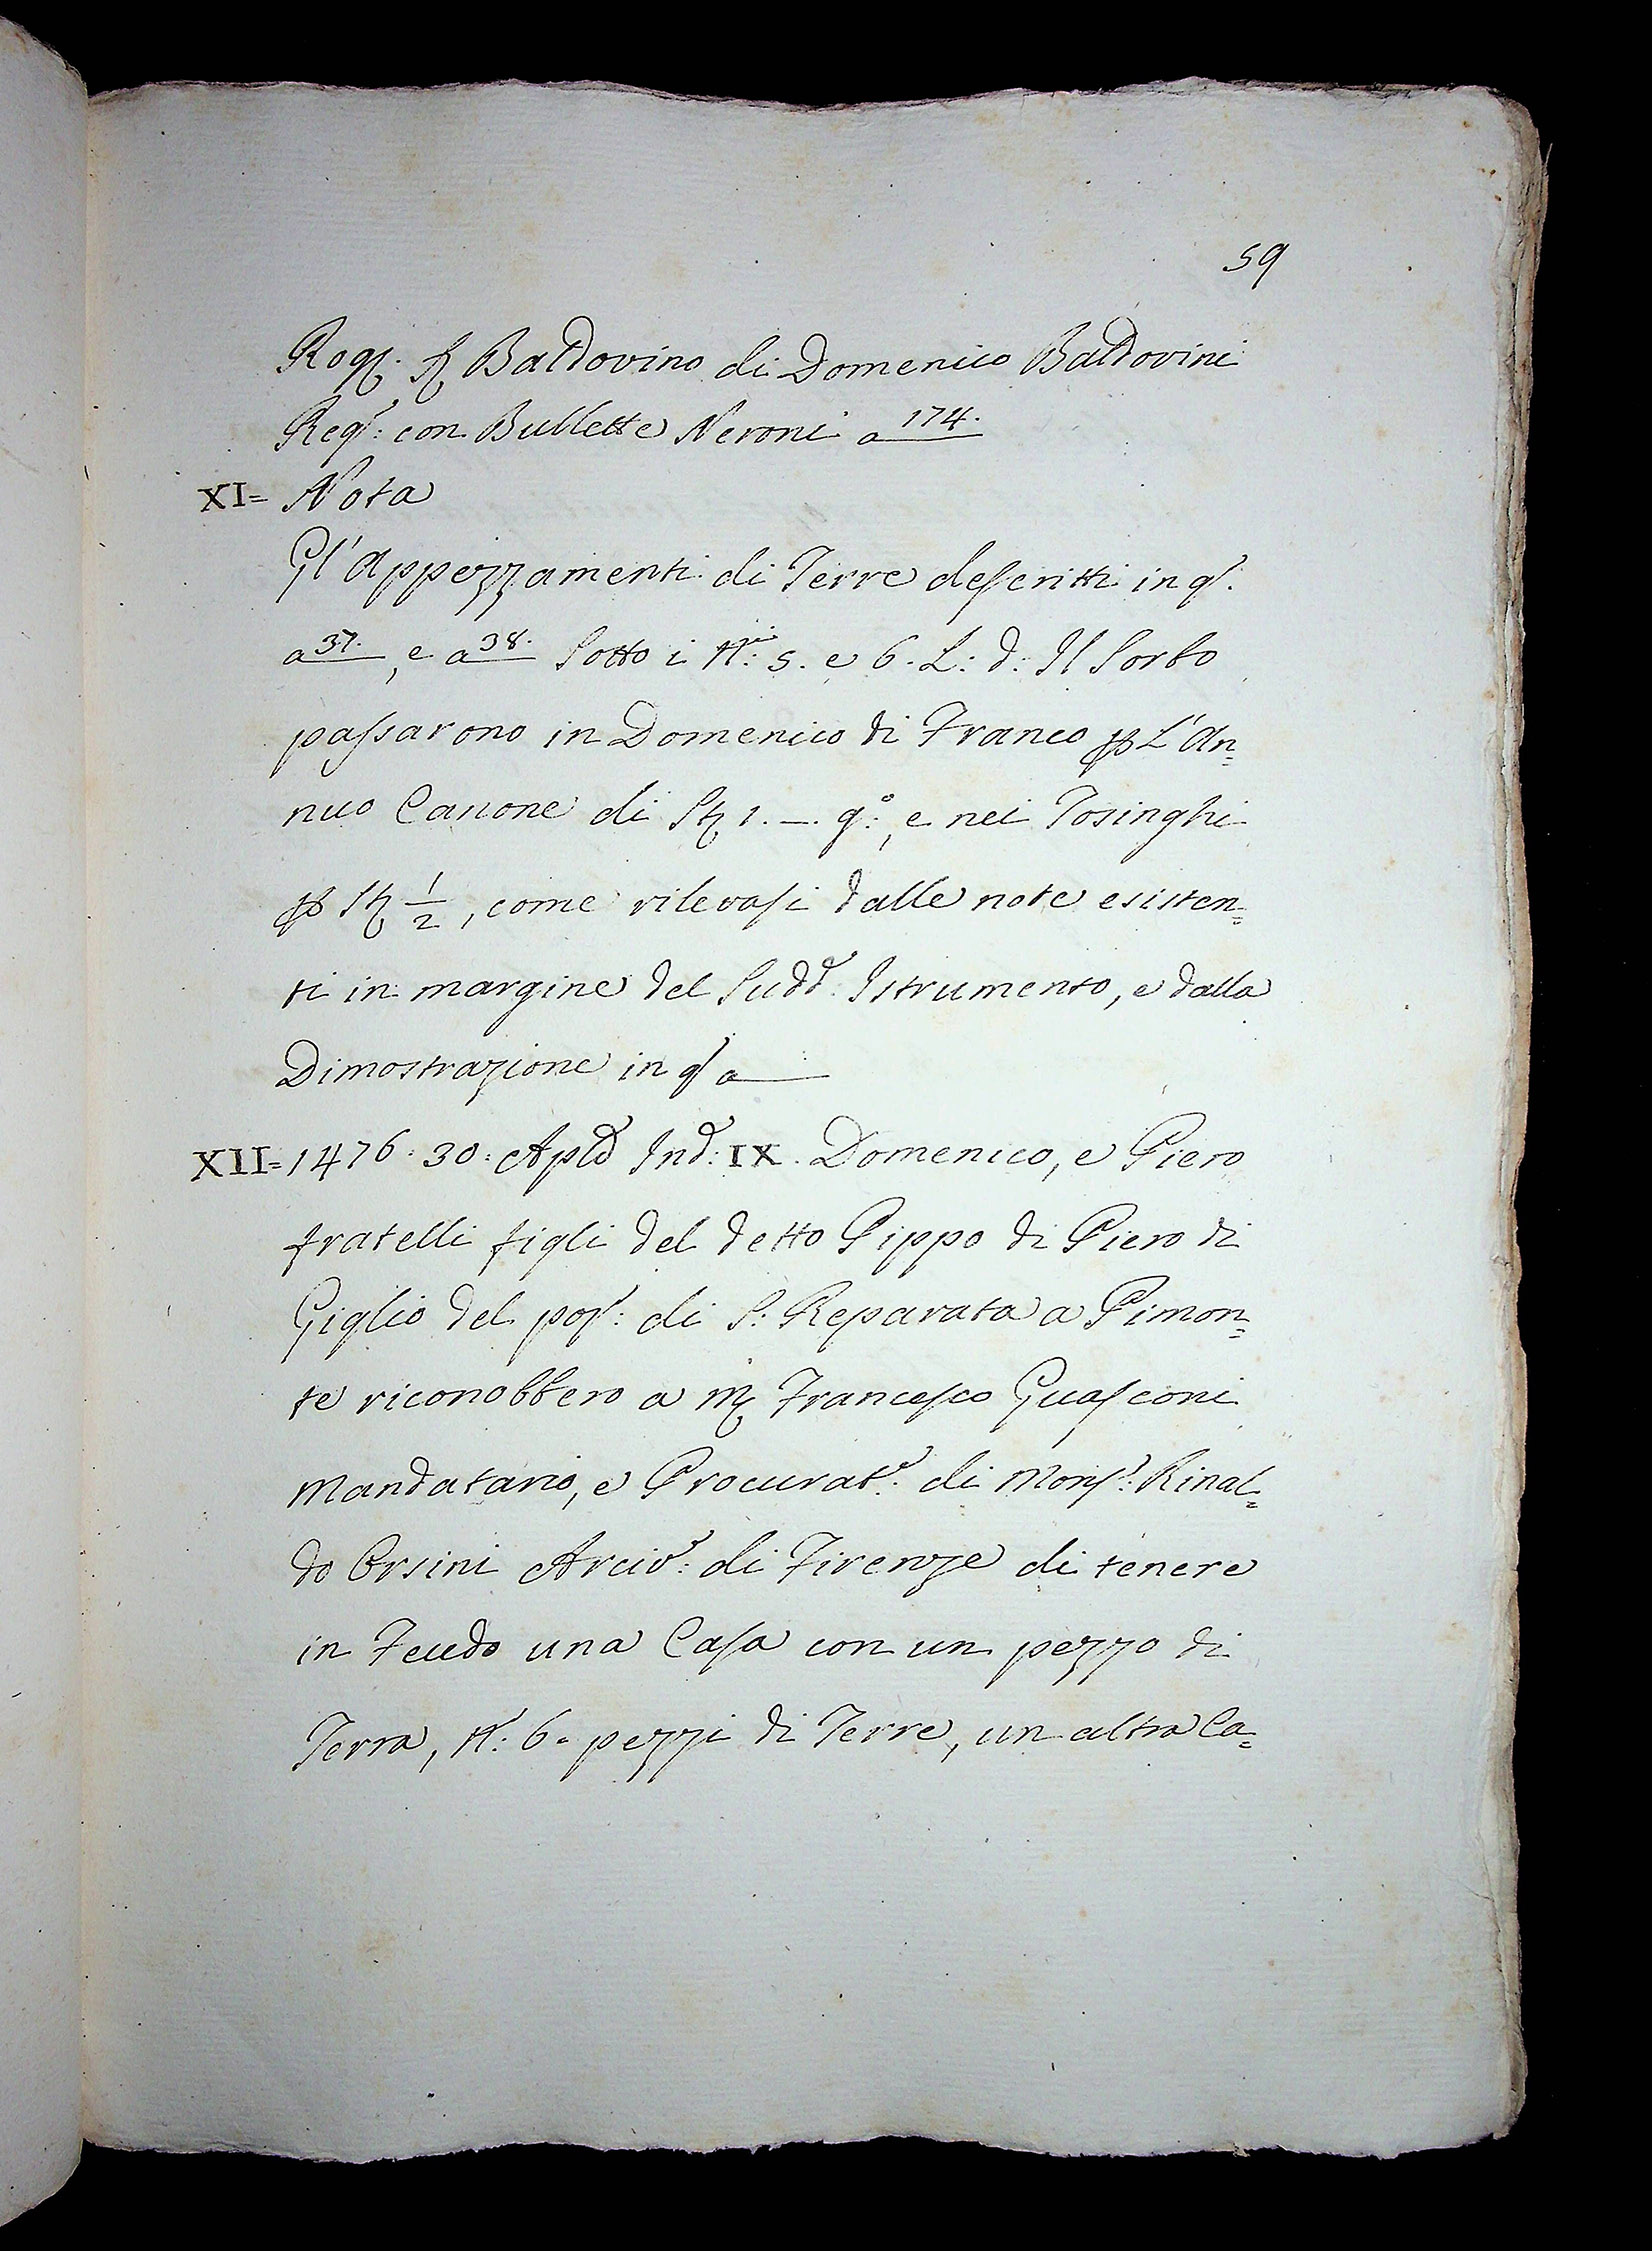 59
Rog: ſ Baldovino di Domenico Baldovini
Reg: con Bullette Neroni a 174.
XI= Nota
Gl'Appezzamenti di Terre deſcritti in qſ.
a 37., e a 38. Sotto i Nⁱ: 5. e 6. L: d: Il Sorbo
paſsarono in Domenico di Franco ꝑ L'An=
nuo Canone di St 1. _. gº:, e nei Tosinghi
ꝑ St 1/2, come rilevaſi dalle note esisten=
ti in margine del Sudd: Istrumento, e dalla
Dimostrazione in qſ a
XII= 1476. 30: Aple Ind: IX. Domenico, e Piero
fratelli figli del detto Pippo di Piero di
Giglio del pop: di S: Reparata a Pimon=
te riconobbero a M Franceſco Guaſconi
Mandatario, e Procurat: di Monſ: Rinal=
do Orsini Arciv: di Firenze di tenere
in Feudo una Caſa con un pezzo di
Terra, N: 6. pezzi di Terre, un altra Ca=